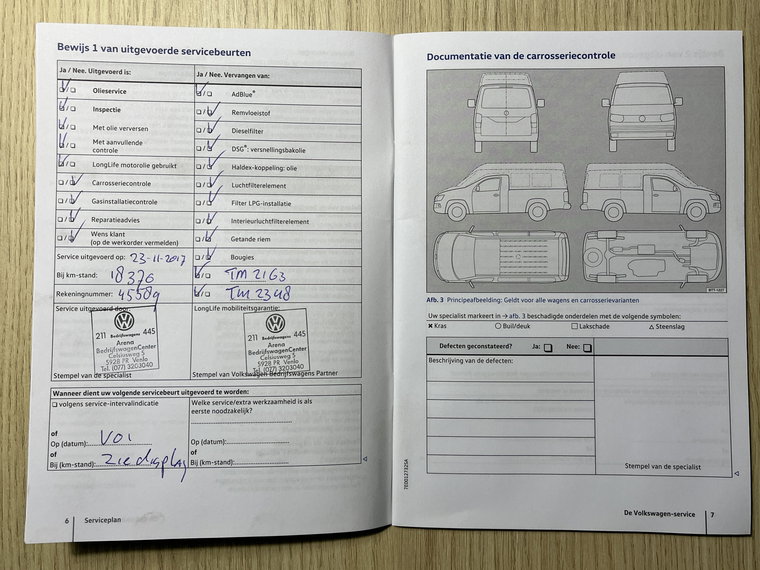 Bewijs 1 van uitgevoerde servicebeurten
Ja / Nee. Uitgevoerd is:
Ja / Nee. Vervangen van:
Olieservice
AdBlue®
Inspectie
Remvloeistof
Met olie verversen
Dieselfilter
Met aanvullende controle
DSG®: versnellingsbakolie
LongLife motorolie gebruikt
Haldex-koppeling: olie
Carrosseriecontrole
Luchtfilterelement
Gasinstallatiecontrole
Filter LPG-installatie
Reparatieadvies
Interieurluchtfilterelement
Wens klant
(op de werkorder vermelden)
Getande riem
Service uitgevoerd op: 23-11-2017
Bougies
Bij km-stand: 18376
TM 2163
Rekeningnummer: 45589
TM 2348
Service uitgevoerd door:
LongLife mobiliteitsgarantie:
211 445
Bedrijfswagens
Arena
BedrijfswagenCenter
Celsiusweg 5
5928 PR Venlo
Tel. (077) 3203040
Stempel van de specialist
211 445
Bedrijfswagens
Arena
BedrijfswagenCenter
Celsiusweg 5
5928 PR Venlo
Tel. (077) 3203040
Stempel van Volkswagen Bedrijfswagens Partner
Wanneer dient uw volgende servicebeurt uitgevoerd te worden:
volgens service-intervalindicatie
Welke service/extra werkzaamheid is als
eerste noodzakelijk?
of
Op (datum):
Op (datum):
of
of
Bij (km-stand): zie display
Bij (km-stand):
6 Serviceplan
Documentatie van de carrosseriecontrole
Afb. 3 Principeafbeelding: Geldt voor alle wagens en carrosserievarianten
Uw specialist markeert in → afb. 3 beschadigde onderdelen met de volgende symbolen:
Kras
Buil/deuk
Lakschade
Steenslag
Defecten geconstateerd? Ja: Nee:
Beschrijving van de defecten:
Stempel van de specialist
De Volkswagen-service 7